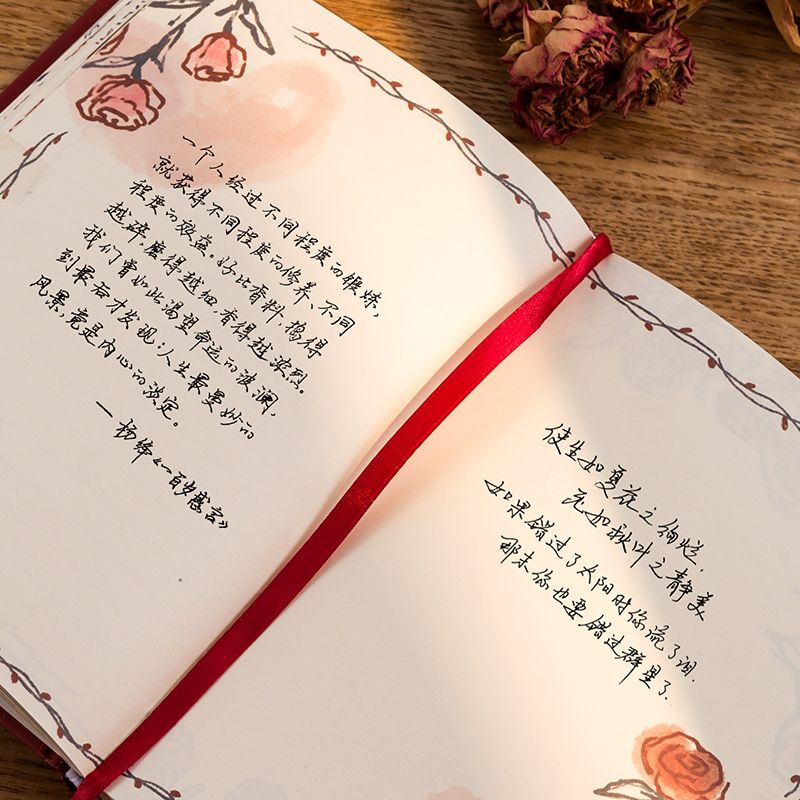 一个人经过不同程度的锻炼,
就获得不同程度的修养、不同
程度的效益。好比香料,捣得
越碎,磨得越细,香得越浓烈。
我们曾如此渴望命运的波澜,
到最后才发现:人生最曼妙的
风景,竟是内心的淡定。
—杨绛《一百岁感言》
使生如夏花之绚烂,
死如秋叶之静美
如果错过了太阳时你流了泪.
那末你也要错过群星了.